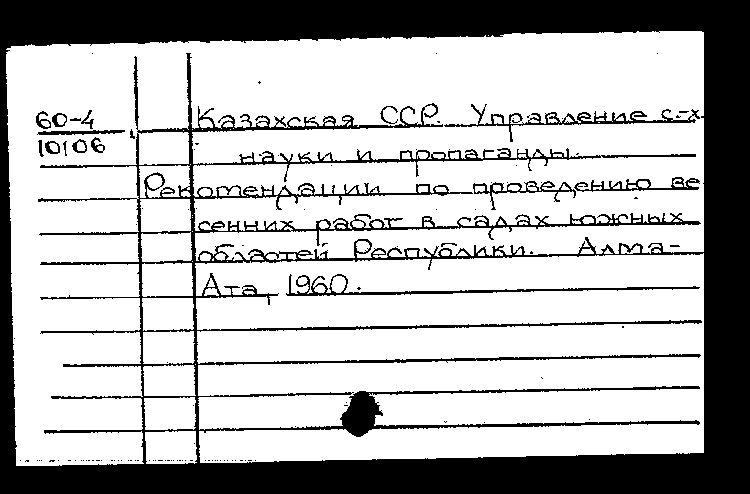 60-4
10106
Казахская ССР. Управление с.-х.
науки и пропаганды.
Рекомендации по проведению ве
сенних работ в садах южных
областей Республики. Алма-
Ата, 1960.